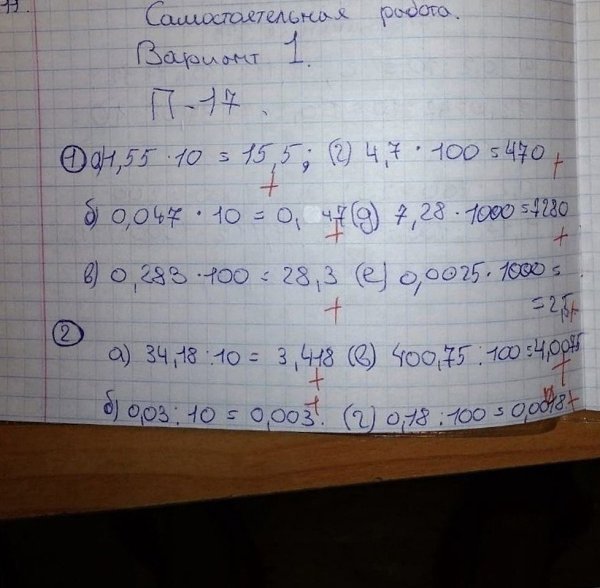 Самостоятельная работа.
Вариант 1.
П-17.
① а) 1,55 · 10 = 15,5; (г) 4,7 · 100 = 470
б) 0,047 · 10 = 0,47 (д) 7,28 · 1000 = 7280
в) 0,283 · 100 = 28,3 (е) 0,0025 · 1000 =
= 2,5
②
а) 34,18 : 10 = 3,418 (в) 400,75 : 100 = 4,0075
б) 0,03 : 10 = 0,003. (г) 0,18 : 100 = 0,0018